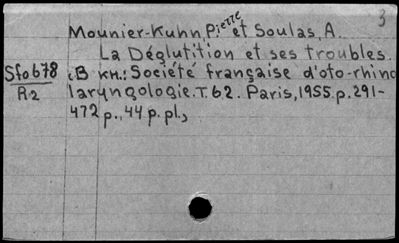 3
Mounier-Kuhn, Pierre et Soulas, A.
La Déglutition et ses troubles.
Sfo678
R2
(В кн.: Société française d'oto-rhino
laryngologie. T. 62. Paris, 1955. p. 291-
472 p., 44 p. pl.,